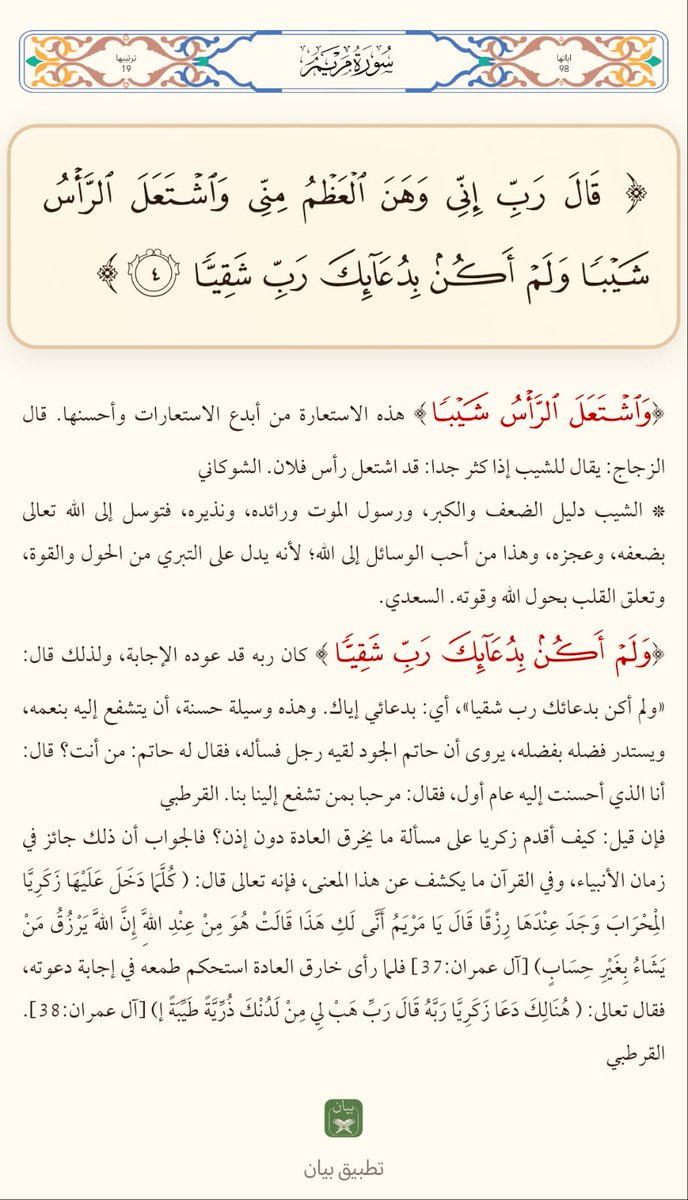 ترتيبها
19
سُورَةُ مَرْيَمَ
اياتها
98
﴿ قَالَ رَبِّ إِنِّي وَهَنَ ٱلۡعَظۡمُ مِنِّي وَٱشۡتَعَلَ ٱلرَّأۡسُ
شَيۡبٗا وَلَمۡ أَكُنۢ بِدُعَآئِكَ رَبِّ شَقِيّٗا ٤ ﴾
﴿وَٱشۡتَعَلَ ٱلرَّأۡسُ شَيۡبٗا﴾ هذه الاستعارة من أبدع الاستعارات وأحسنها. قال
الزجاج: يقال للشيب إذا كثر جدا: قد اشتعل رأس فلان. الشوكاني
* الشيب دليل الضعف والكبر، ورسول الموت ورائده، ونذيره، فتوسل إلى الله تعالى
بضعفه، وعجزه، وهذا من أحب الوسائل إلى الله؛ لأنه يدل على التبري من الحول والقوة،
وتعلق القلب بحول الله وقوته. السعدي.
﴿وَلَمۡ أَكُنۢ بِدُعَآئِكَ رَبِّ شَقِيّٗا ﴾ كان ربه قد عوده الإجابة، ولذلك قال:
«ولم أكن بدعائك رب شقيا»، أي: بدعائي إياك. وهذه وسيلة حسنة، أن يتشفع إليه بنعمه،
ويستدر فضله بفضله، يروى أن حاتم الجود لقيه رجل فسأله، فقال له حاتم: من أنت؟ قال:
أنا الذي أحسنت إليه عام أول، فقال: مرحبا بمن تشفع إلينا بنا. القرطبي
فإن قيل: كيف أقدم زكريا على مسألة ما يخرق العادة دون إذن؟ فالجواب أن ذلك جائز في
زمان الأنبياء، وفي القرآن ما يكشف عن هذا المعنى، فإنه تعالى قال: ( كُلَّمَا دَخَلَ عَلَيْهَا زَكَرِيَّا
الْمِحْرَابَ وَجَدَ عِنْدَهَا رِزْقًا قَالَ يَا مَرْيَمُ أَنَّى لَكِ هَذَا قَالَتْ هُوَ مِنْ عِنْدِ اللَّهِ إِنَّ اللَّهَ يَرْزُقُ مَنْ
يَشَاءُ بِغَيْرِ حِسَابٍ) [آل عمران:37] فلما رأى خارق العادة استحكم طمعه في إجابة دعوته،
فقال تعالى: ( هُنَالِكَ دَعَا زَكَرِيَّا رَبَّهُ قَالَ رَبِّ هَبْ لِي مِنْ لَدُنْكَ ذُرِّيَّةً طَيِّبَةً إ) [آل عمران:38].
القرطبي
بيان
تطبيق بيان